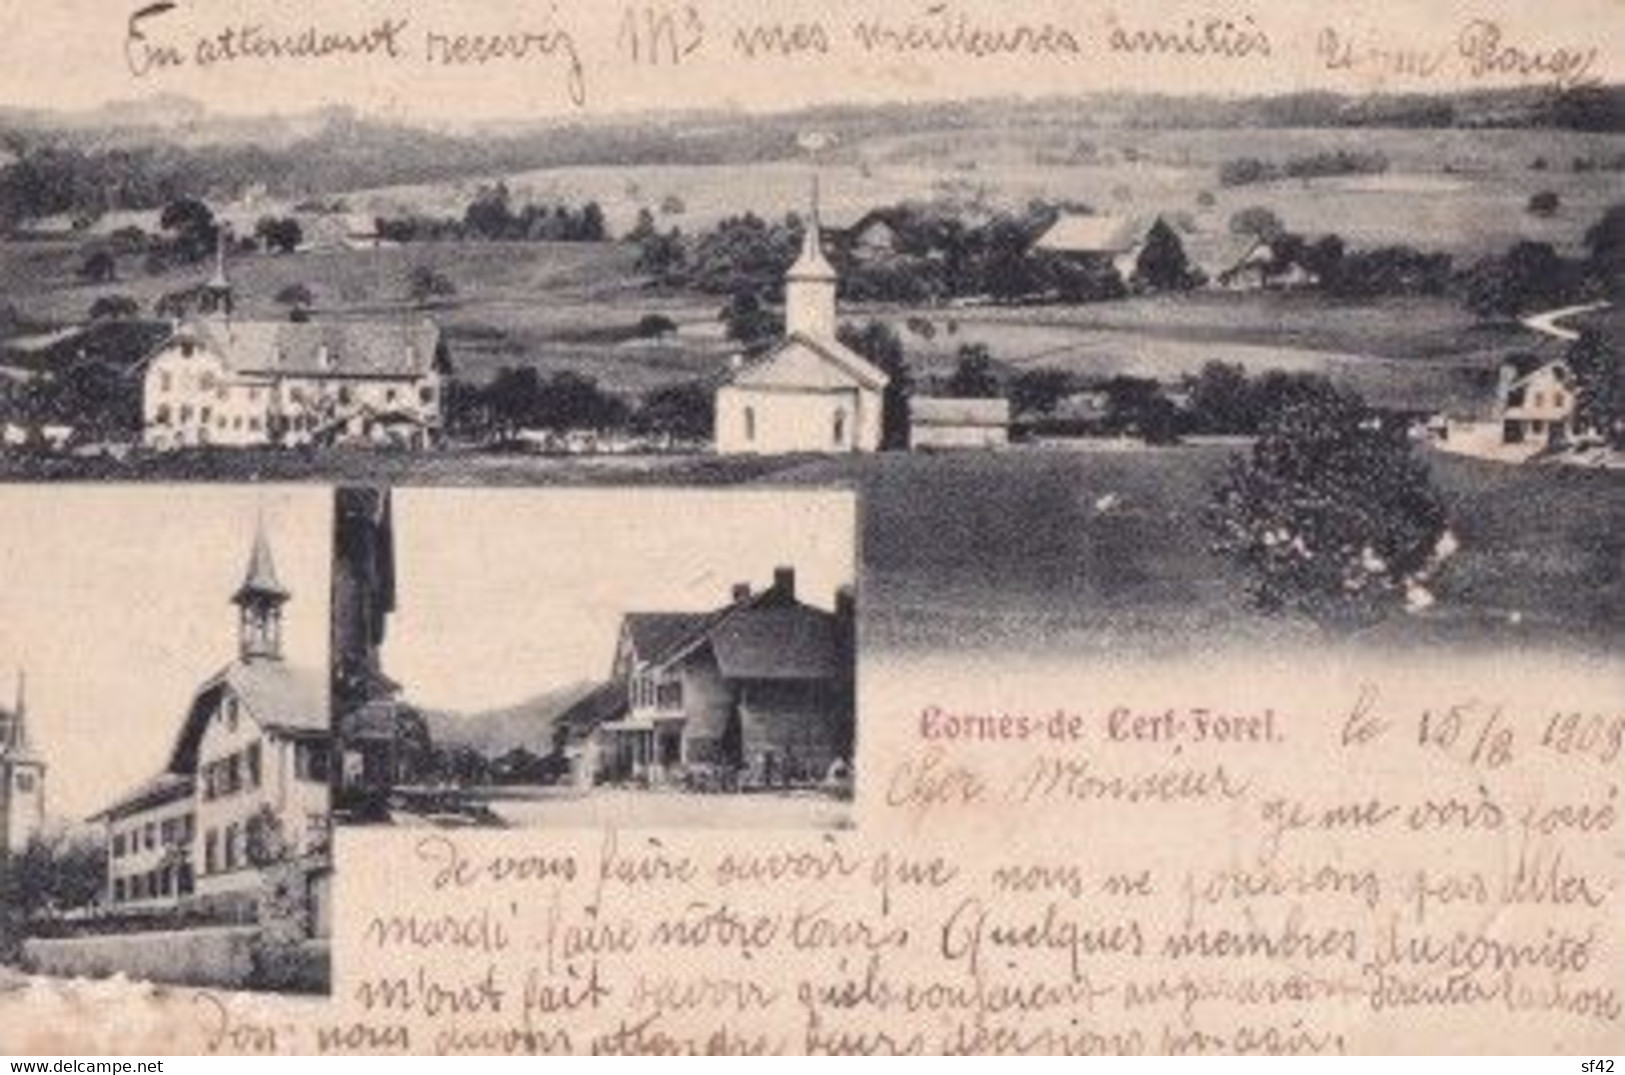 En attendant recevez Mr mes meilleures amitiés
Cornes-de Cerf-Forel. le 15/9 1908
Cher Monsieur
je me vois
De vous faire savoir que nous ne pourrons pas aller
mardi faire nôtre tour. Quelques membres du comité
m'ont fait savoir qu'ils
Don nous devons attendre leurs décisions
delcampe.net
sf42